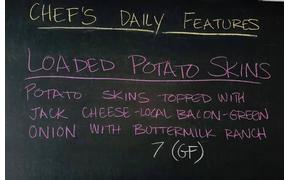 CHEF'S DAILY FEATURES
LOADED POTATO SKINS
POTATO SKINS TOPPED WITH
JACK CHEESE-LOCAL BACON-GREEN
ONION WITH BUTTERMILK RANCH
7 (GF)